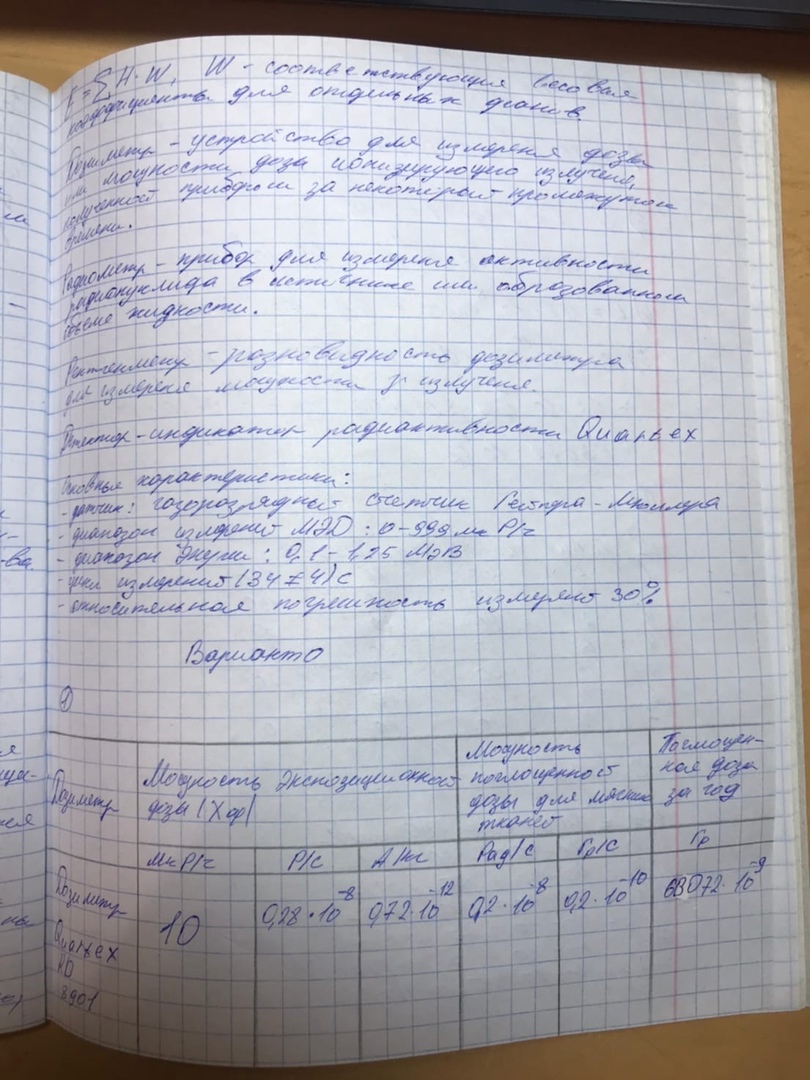 E = ∑ H · W, W - соответствующия весовая
коэффициенты для отдельных органов.
Дозиметр - устройство для измерения дозы
или мощности дозы ионизирующего излучения,
полученной прибором за некоторый промежуток
времени.
Радиометр - прибор для измерения активности
радионуклида в источнике или образованном
объеме жидкости.
Рентгенметр - разновидность дозиметра
для измерения мощности γ излучения.
Детектор - индикатор радиактивности Quartex
Основные характеристики:
- датчик: газоразрядный счетчик Гейгера - Мюллера
- диапозон измерений МЭД : 0 - 999 мк Р/ч
- диапозон Энергии : 0,1 - 1,25 МэВ
- цикл измерений (34 ± 4) с
- относительная погрешность измерений 30%
Вариант 0
1)
Дозиметр
Мощность Экспозиционной
дозы (Хср)
Мощность
поглощенной
дозы для мягких
тканей
Поглощен-
ная доза
за год
Мк Р/ч Р/с А/кг Рад/с Гр/с Гр
Дозиметр
Quartex
RD
8901
10 0,28 · 10⁻⁸ 0,72 · 10⁻¹² 0,2 · 10⁻⁸ 0,2 · 10⁻¹⁰ 63072 · 10⁻⁹